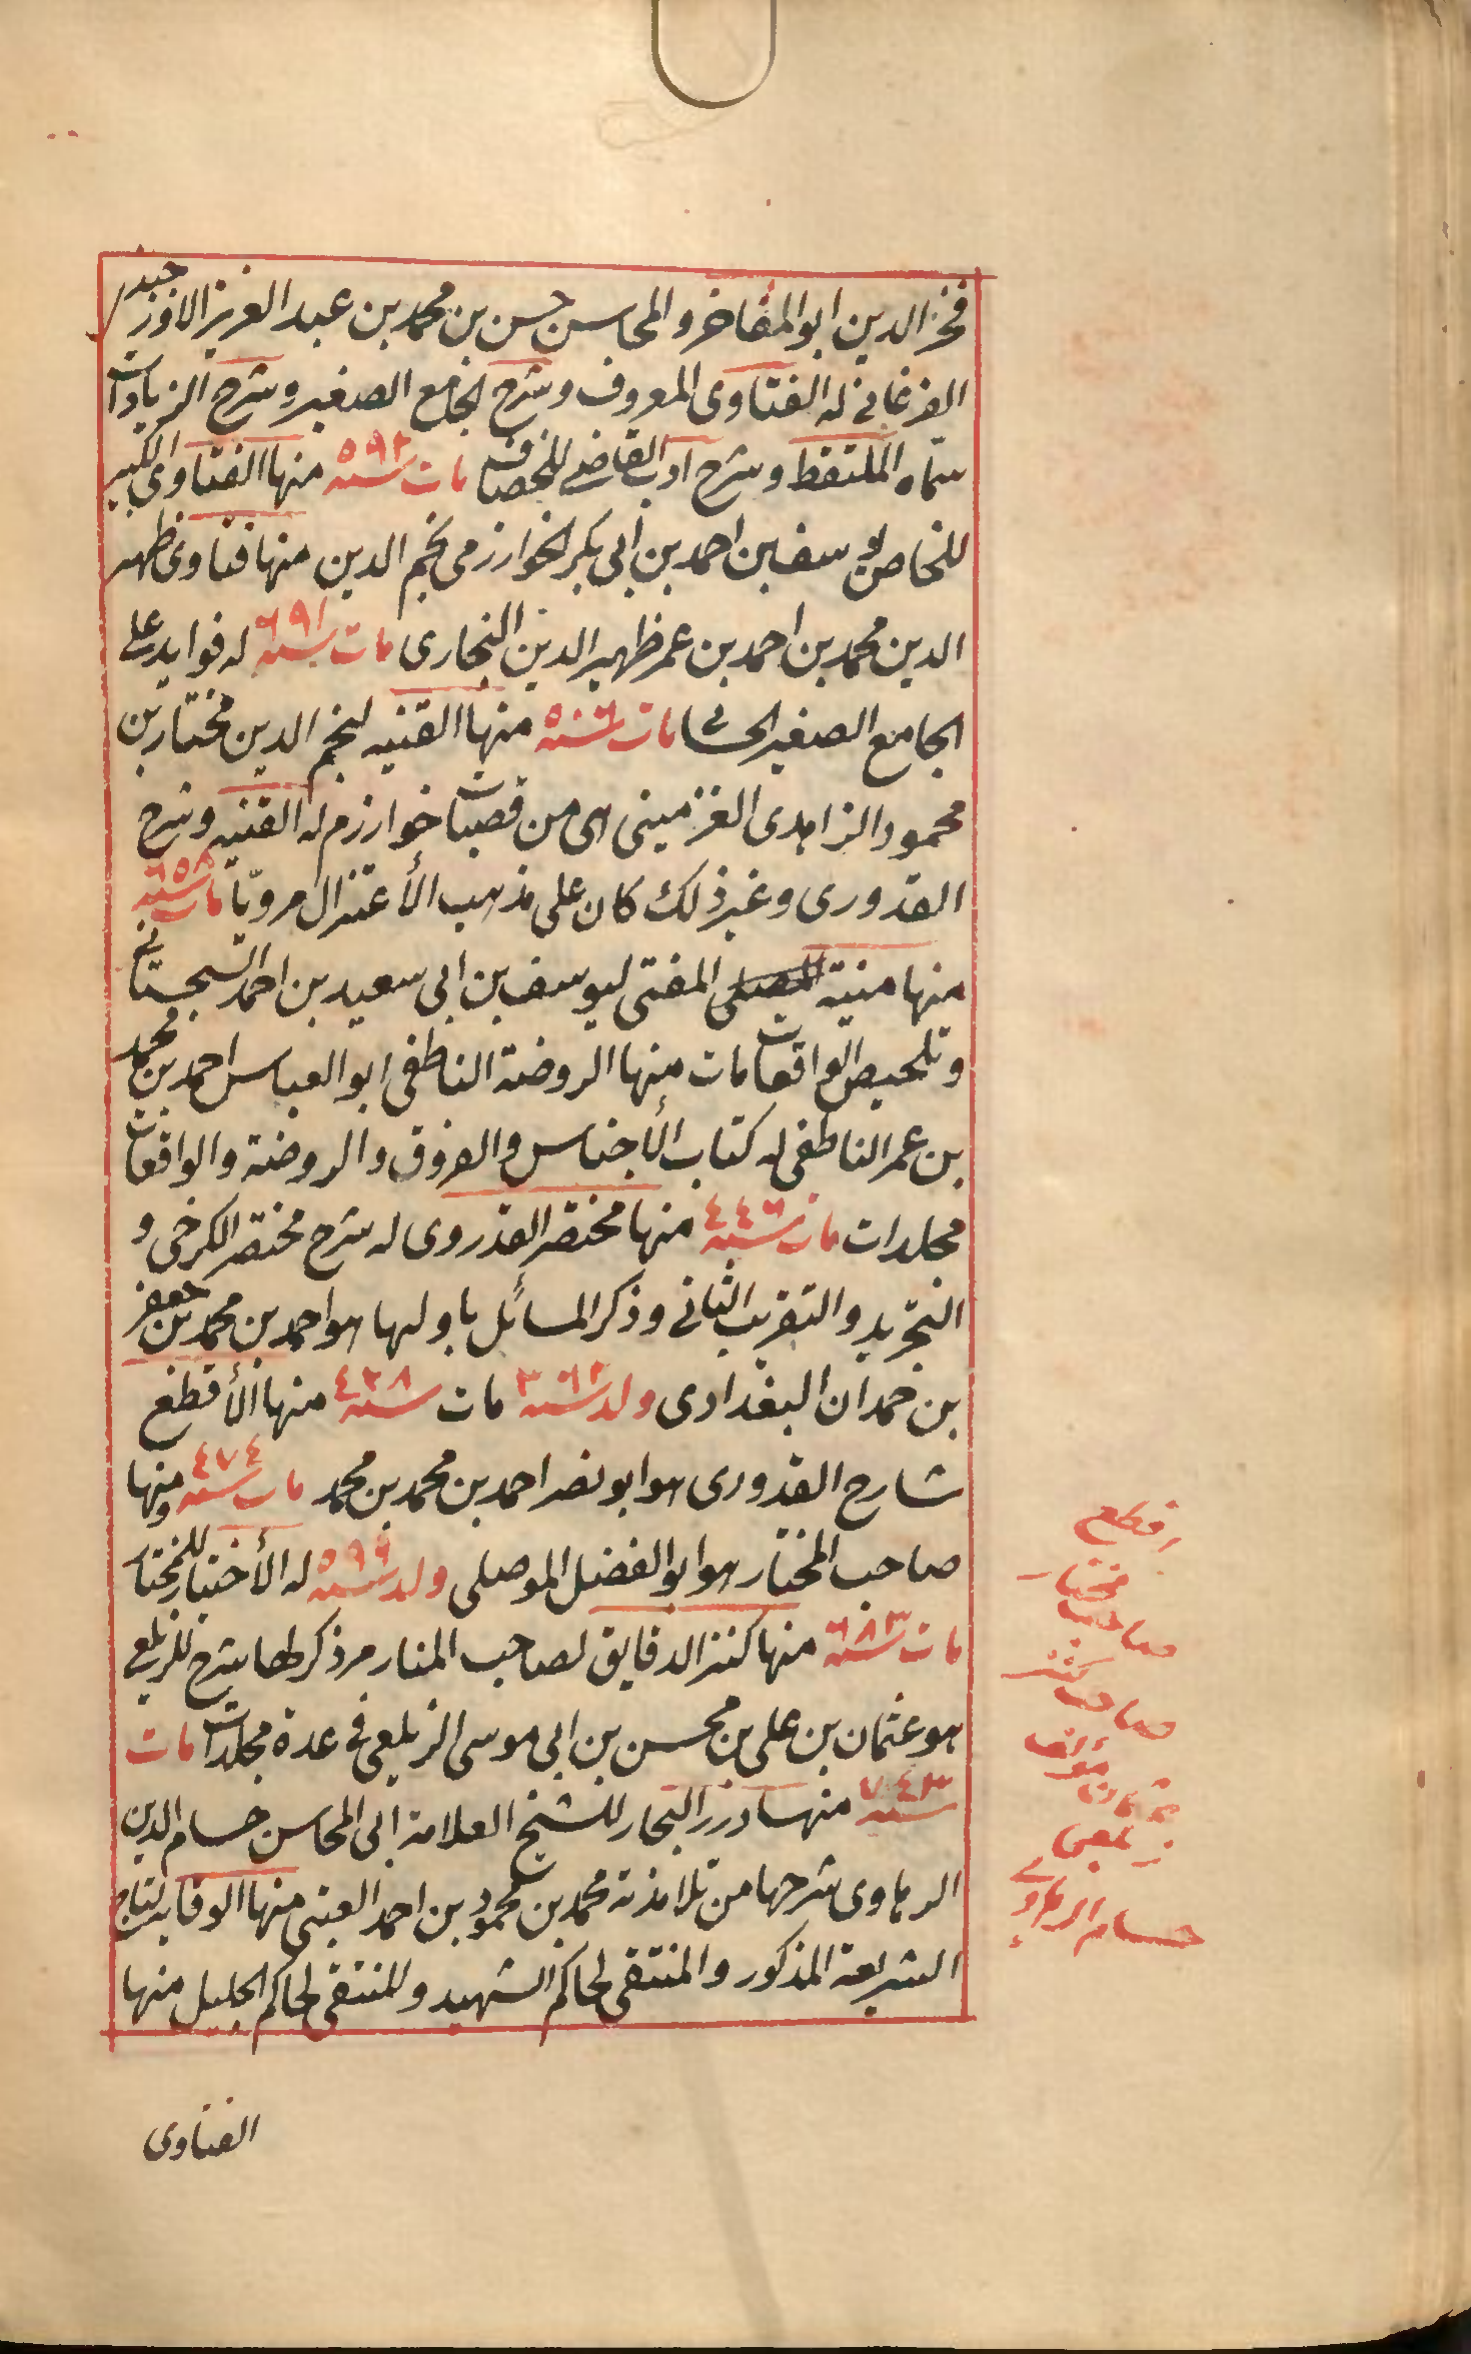 فخر الدين ابو المفاخر والمحاسن حسن بن محمد بن عبد العزيز الاوزجندى
الفرغانى له الفتاوى المعروف وشرح الجامع الصغير وشرح الزيادات
سماه الملتقط وشرح ادب القاضى للخصاف مات سنه ٥٩٢ منها الفتاوى الكبير
للخاصى يوسف بن احمد بن أبى بكر الخوارزمى نجم الدين منها فتاوى ظهير
الدين محمد بن احمد بن عمر ظهير الدين البخارى مات سنه ٦٩١ له فوايد على
الجامع الصغير الحسامى مات سنه ٥٠٦ منها القنيه لنجم الدين مختار بن
محمود الزاهدى الغزمينى اى من قصبات خوارزم له القنيه وشرح
القدورى وغير ذلك كان على مذهب الأعتزال مرويّا مات سنه ٦٥٨
منها منية المصلى المفتى ليوسف بن ابى سعيد بن احمد السجستانى
وتلخيص الواقعات مات منها الروضة الناطفى ابو العباس احمد بن محمد
بن عمر الناطفى له كتاب الأجناس والفروق والروضة والواقعات
مجلدات مات سنه ٤٤٦ منها مختصر القدروى له شرح مختصر الكرخى و
التجريد والتقريب الثانى وذكر المسائل باولها هو احمد بن محمد بن جعفر
بن حمدان البغدادى ولد سنه ٣٦٢ مات سنه ٤٢٨ منها الأقطع
شارح القدورى هو ابو نصر احمد بن محمد بن محمد مات سنه ٤٧٤ ومنها
صاحب المختار هو ابو الفضل الموصلى ولد سنه ٥٩٩ له الأختيار للمختار
مات سنه ٦٨٣ منها كنز الدقايق لصاحب المنار مر ذكر لها شرح للزيلعى
هو عثمان بن على بن محسن بن ابى موسى الزيلعى فى عدة مجلدات مات
سنه ٧٤٣ منها درر البحار للشيخ العلامة ابى المحاسن حسام الدين
الرهاوى شرحها من تلامذته محمد بن محمود بن احمد العينى منها الوقايه لتاج
الشريعة المذكور والمنتقى لحاكم الشهيد وللمنتقى لحاكم الجليل منها
الفتاوى
اقطع
مختار
صاحب
كنز
صاحب
مؤلف
عثمان
زيلعى
حسام الرهاوى